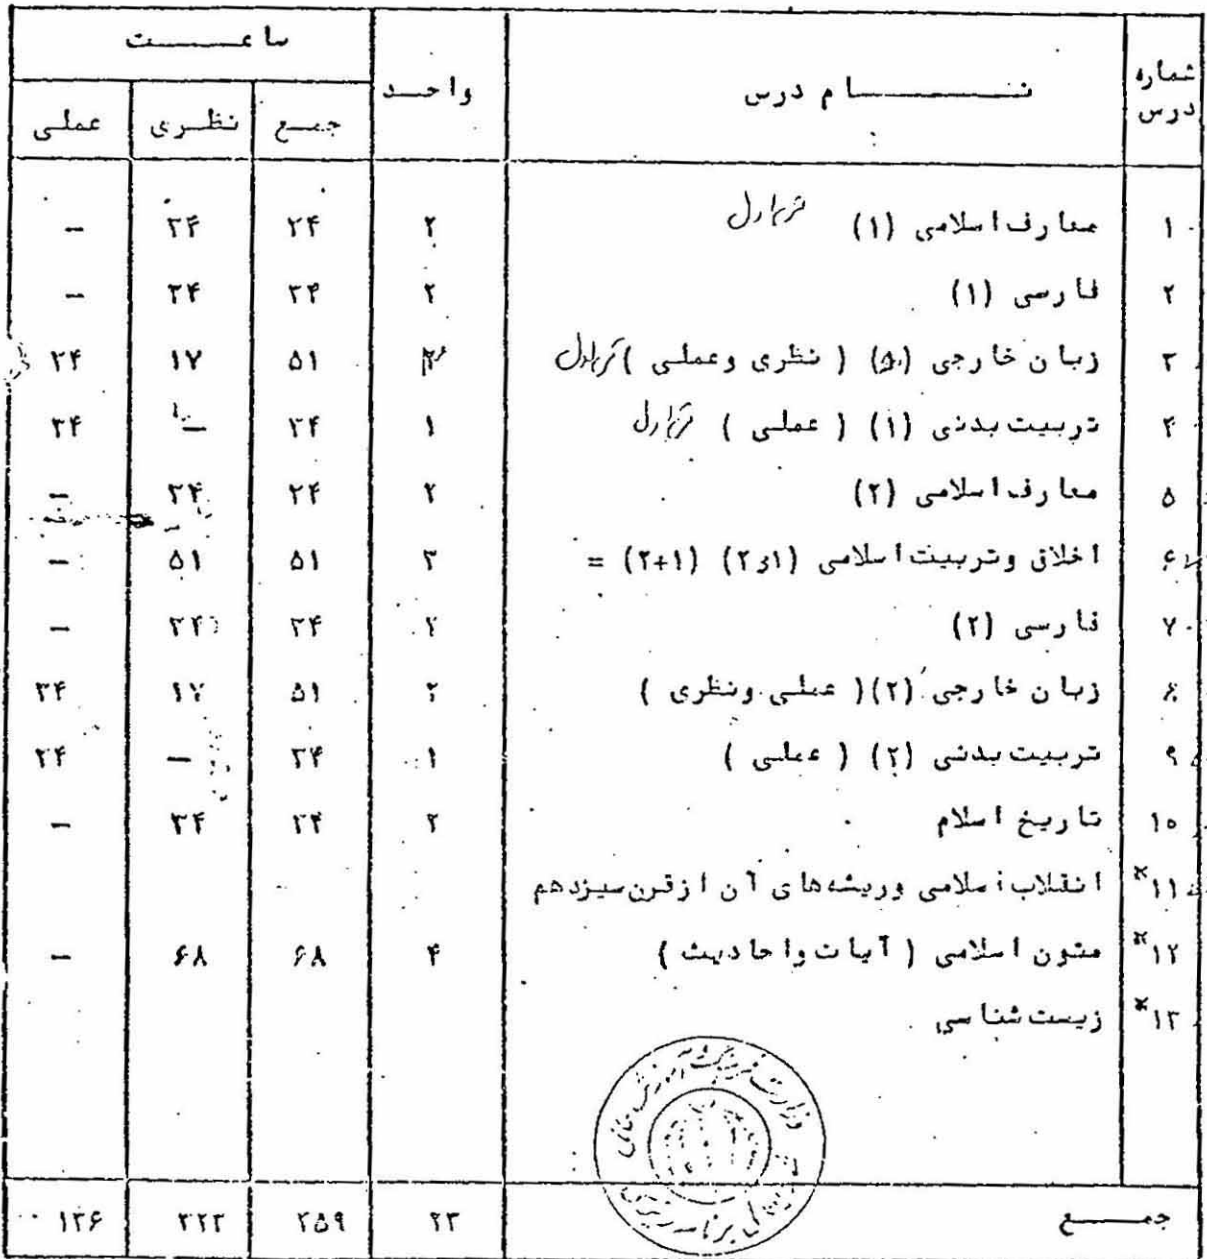 شماره درس | نام درس | واحد | ساعت
جمع | نظری | عملی
۱ | معارف اسلامی (۱) ترم اول | ۲ | ۳۴ | ۳۴ | –
۲ | فارسی (۱) | ۲ | ۳۴ | ۳۴ | –
۳ | زبان خارجی (۱) ( نظری وعملی ) ترم اول | ۲ | ۵۱ | ۱۷ | ۳۴
۴ | تربیت بدنی (۱) ( عملی ) ترم اول | ۱ | ۳۴ | – | ۳۴
۵ | معارف اسلامی (۲) | ۲ | ۳۴ | ۳۴ | –
۶ | اخلاق وتربیت اسلامی (۱و۲) (۲+۱) = | ۳ | ۵۱ | ۵۱ | –
۷ | فارسی (۲) | ۲ | ۳۴ | ۳۴ | –
۸ | زبان خارجی (۲) ( عملی ونظری ) | ۲ | ۵۱ | ۱۷ | ۳۴
۹ | تربیت بدنی (۲) ( عملی ) | ۱ | ۳۴ | – | ۳۴
۱۰ | تاریخ اسلام | ۲ | ۳۴ | ۳۴ | –
*۱۱ | انقلاب اسلامی وریشه‌های آن ازقرن سیزدهم
*۱۲ | متون اسلامی ( آیات واحادیث ) | ۴ | ۶۸ | ۶۸ | –
*۱۳ | زیست شناسی
وزارت فرهنگ و آموزش عالی
برنامه ریزی
جمع | ۲۳ | ۴۵۹ | ۳۲۳ | ۱۳۶